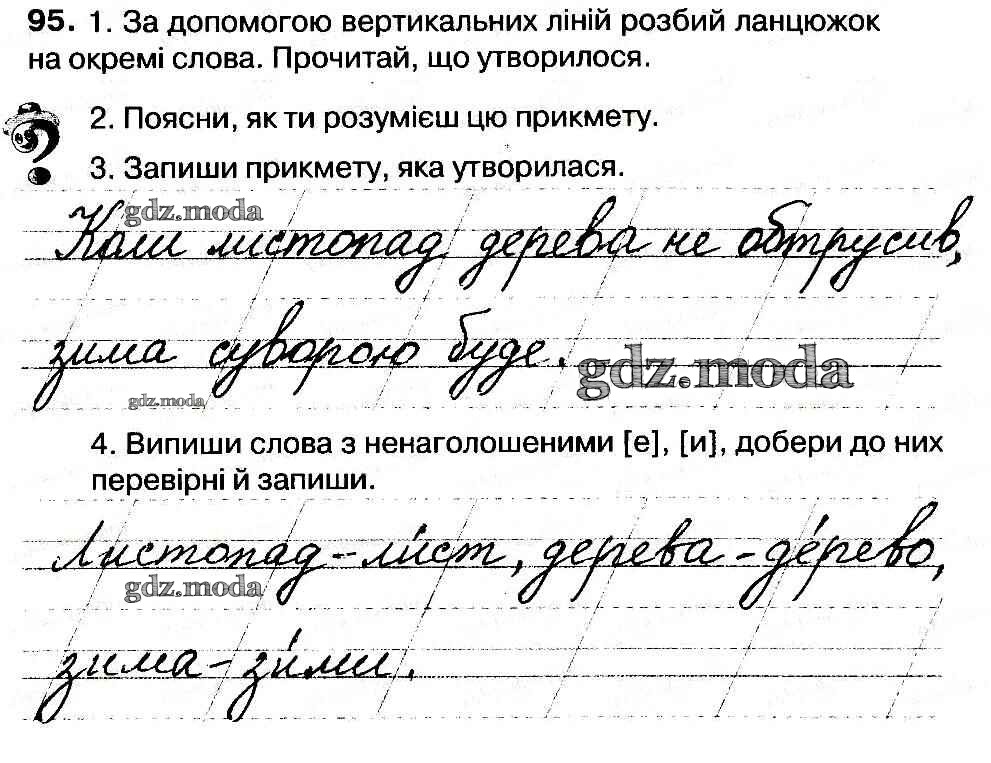 95. 1. За допомогою вертикальних ліній розбий ланцюжок
на окремі слова. Прочитай, що утворилося.
2. Поясни, як ти розумієш цю прикмету.
3. Запиши прикмету, яка утворилася.
gdz.moda
Коли листопад дерева не обтрусив,
зима суворою буде.
gdz.moda
gdz.moda
4. Випиши слова з ненаголошеними [е], [и], добери до них
перевірні й запиши.
Листопад – ли́ст, дерева – де́рево,
gdz.moda
зима – зи́ми.